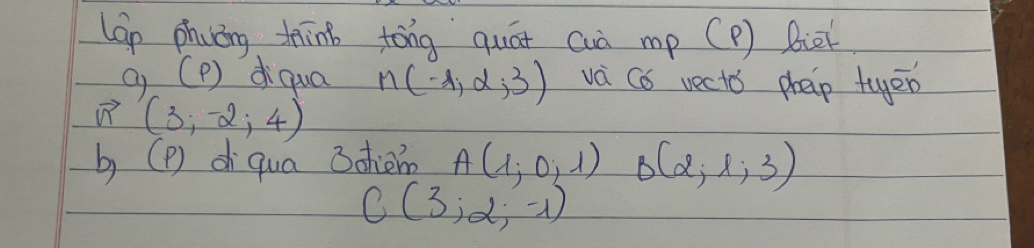 Lập phương trình tổng quát của mp (P) biết
a, (P) đi qua M(-1; 2; 3) và có vectơ pháp tuyến
n⃗ (3; -2; 4)
b, (P) đi qua 3 điểm A(1; 0; 1) B(2; 1; 3)
C (3; 2; -1)